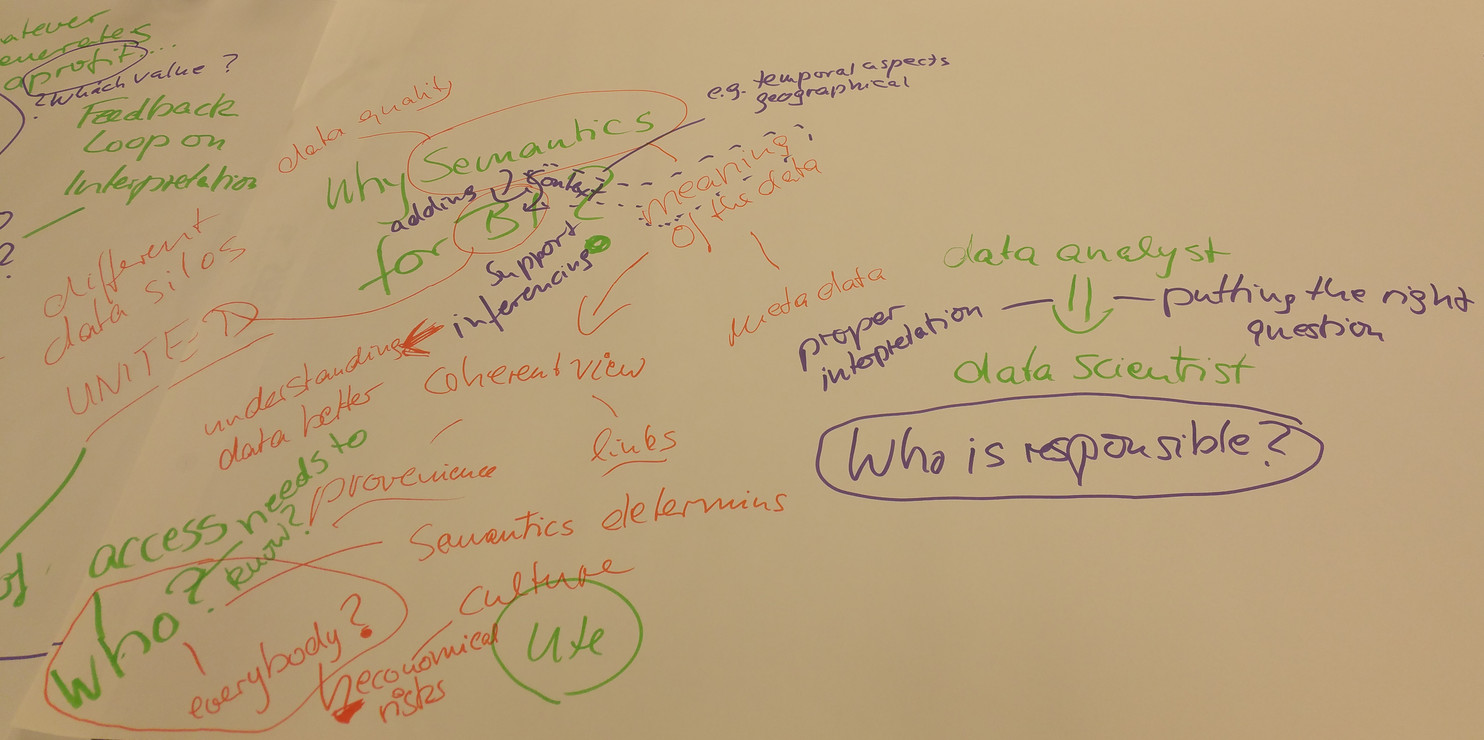 atever
enerates
a profit...
? Which value ?
Feedback
Loop on
Interpretation
?
data quality
Why Semantics
for BI ?
adding context
e.g. temporal aspects
geographical
meaning
of the data
support
inferencing
different
data silos
UNITED
understanding
data better
coherent view
meta data
links
provenience
data analyst
proper
interpretation
putting the right
question
data scientist
Who is responsible?
of access needs to
know?
Who?
everybody?
Semantics determins
culture
economical
risks
Ute